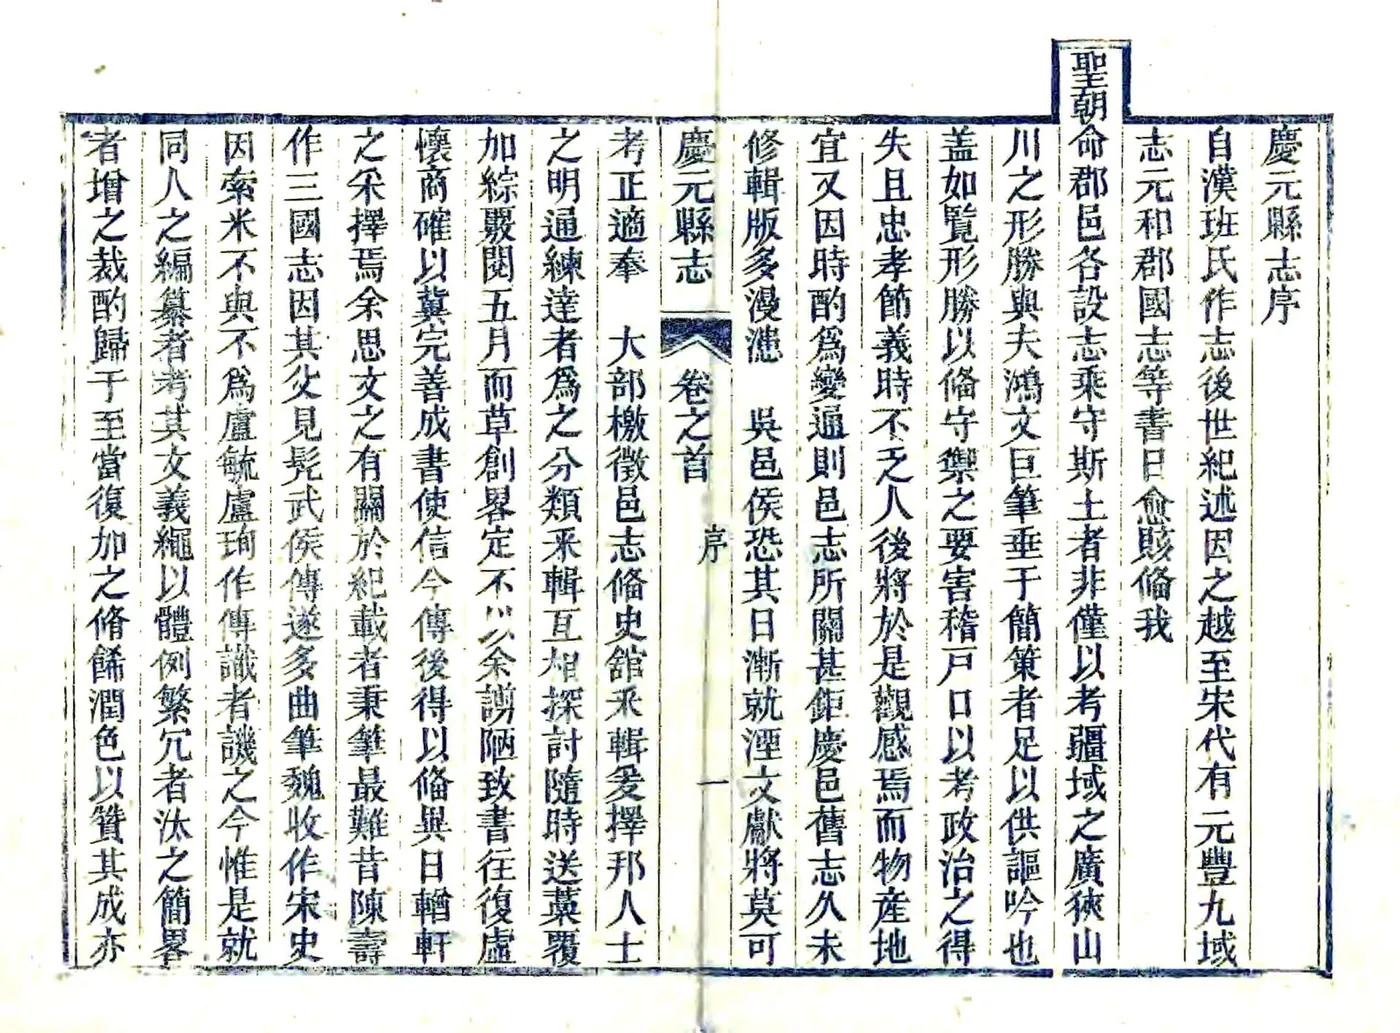 慶元縣志序
自漢班氏作志後世紀述因之越至宋代有元豐九域
志元和郡國志等書日愈賅俻我
聖朝命郡邑各設志乘守斯土者非僅以考疆域之廣狹山
川之形勝與夫鴻文巨筆垂于簡策者足以供謳吟也
盖如覽形勝以俻守禦之要害稽戸口以考政治之得
失且忠孝節義時不乏人後將於是觀感焉而物産地
宜又因時酌爲變通則邑志所關甚鉅慶邑舊志久未
修輯版多漫漶 吳邑侯恐其日漸就湮文獻將莫可
慶元縣志 卷之首 序 一
考正適奉 大部檄徵邑志俻史舘釆輯爰擇邦人士
之明通練達者爲之分類釆輯互相探討隨時送藁覆
加綜覈閱五月而草創畧定不以余謭陋致書往復虛
懷商確以冀完善成書使信今傳後得以俻異日輶軒
之采擇焉余思文之有關於紀載者秉筆最難昔陳壽
作三國志因其父見髡武侯傳遂多曲筆魏收作宋史
因索米不與不爲盧毓盧珣作傳識者譏之今惟是就
同人之編纂者考其文義繩以體例繁冗者汰之簡畧
者增之裁酌歸于至當復加之脩餙潤色以贊其成亦